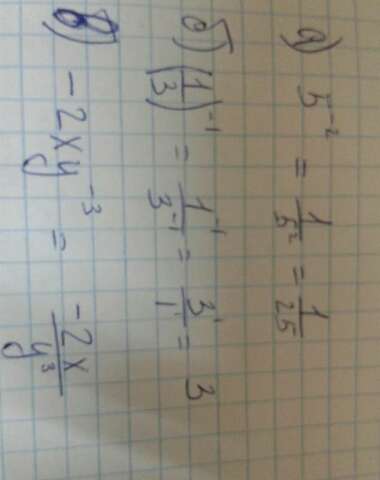 а) 5⁻² = 1/5² = 1/25
б) (1/3)⁻¹ = 1⁻¹/3⁻¹ = 3¹/1¹ = 3
в) -2xy⁻³ = -2x/y³